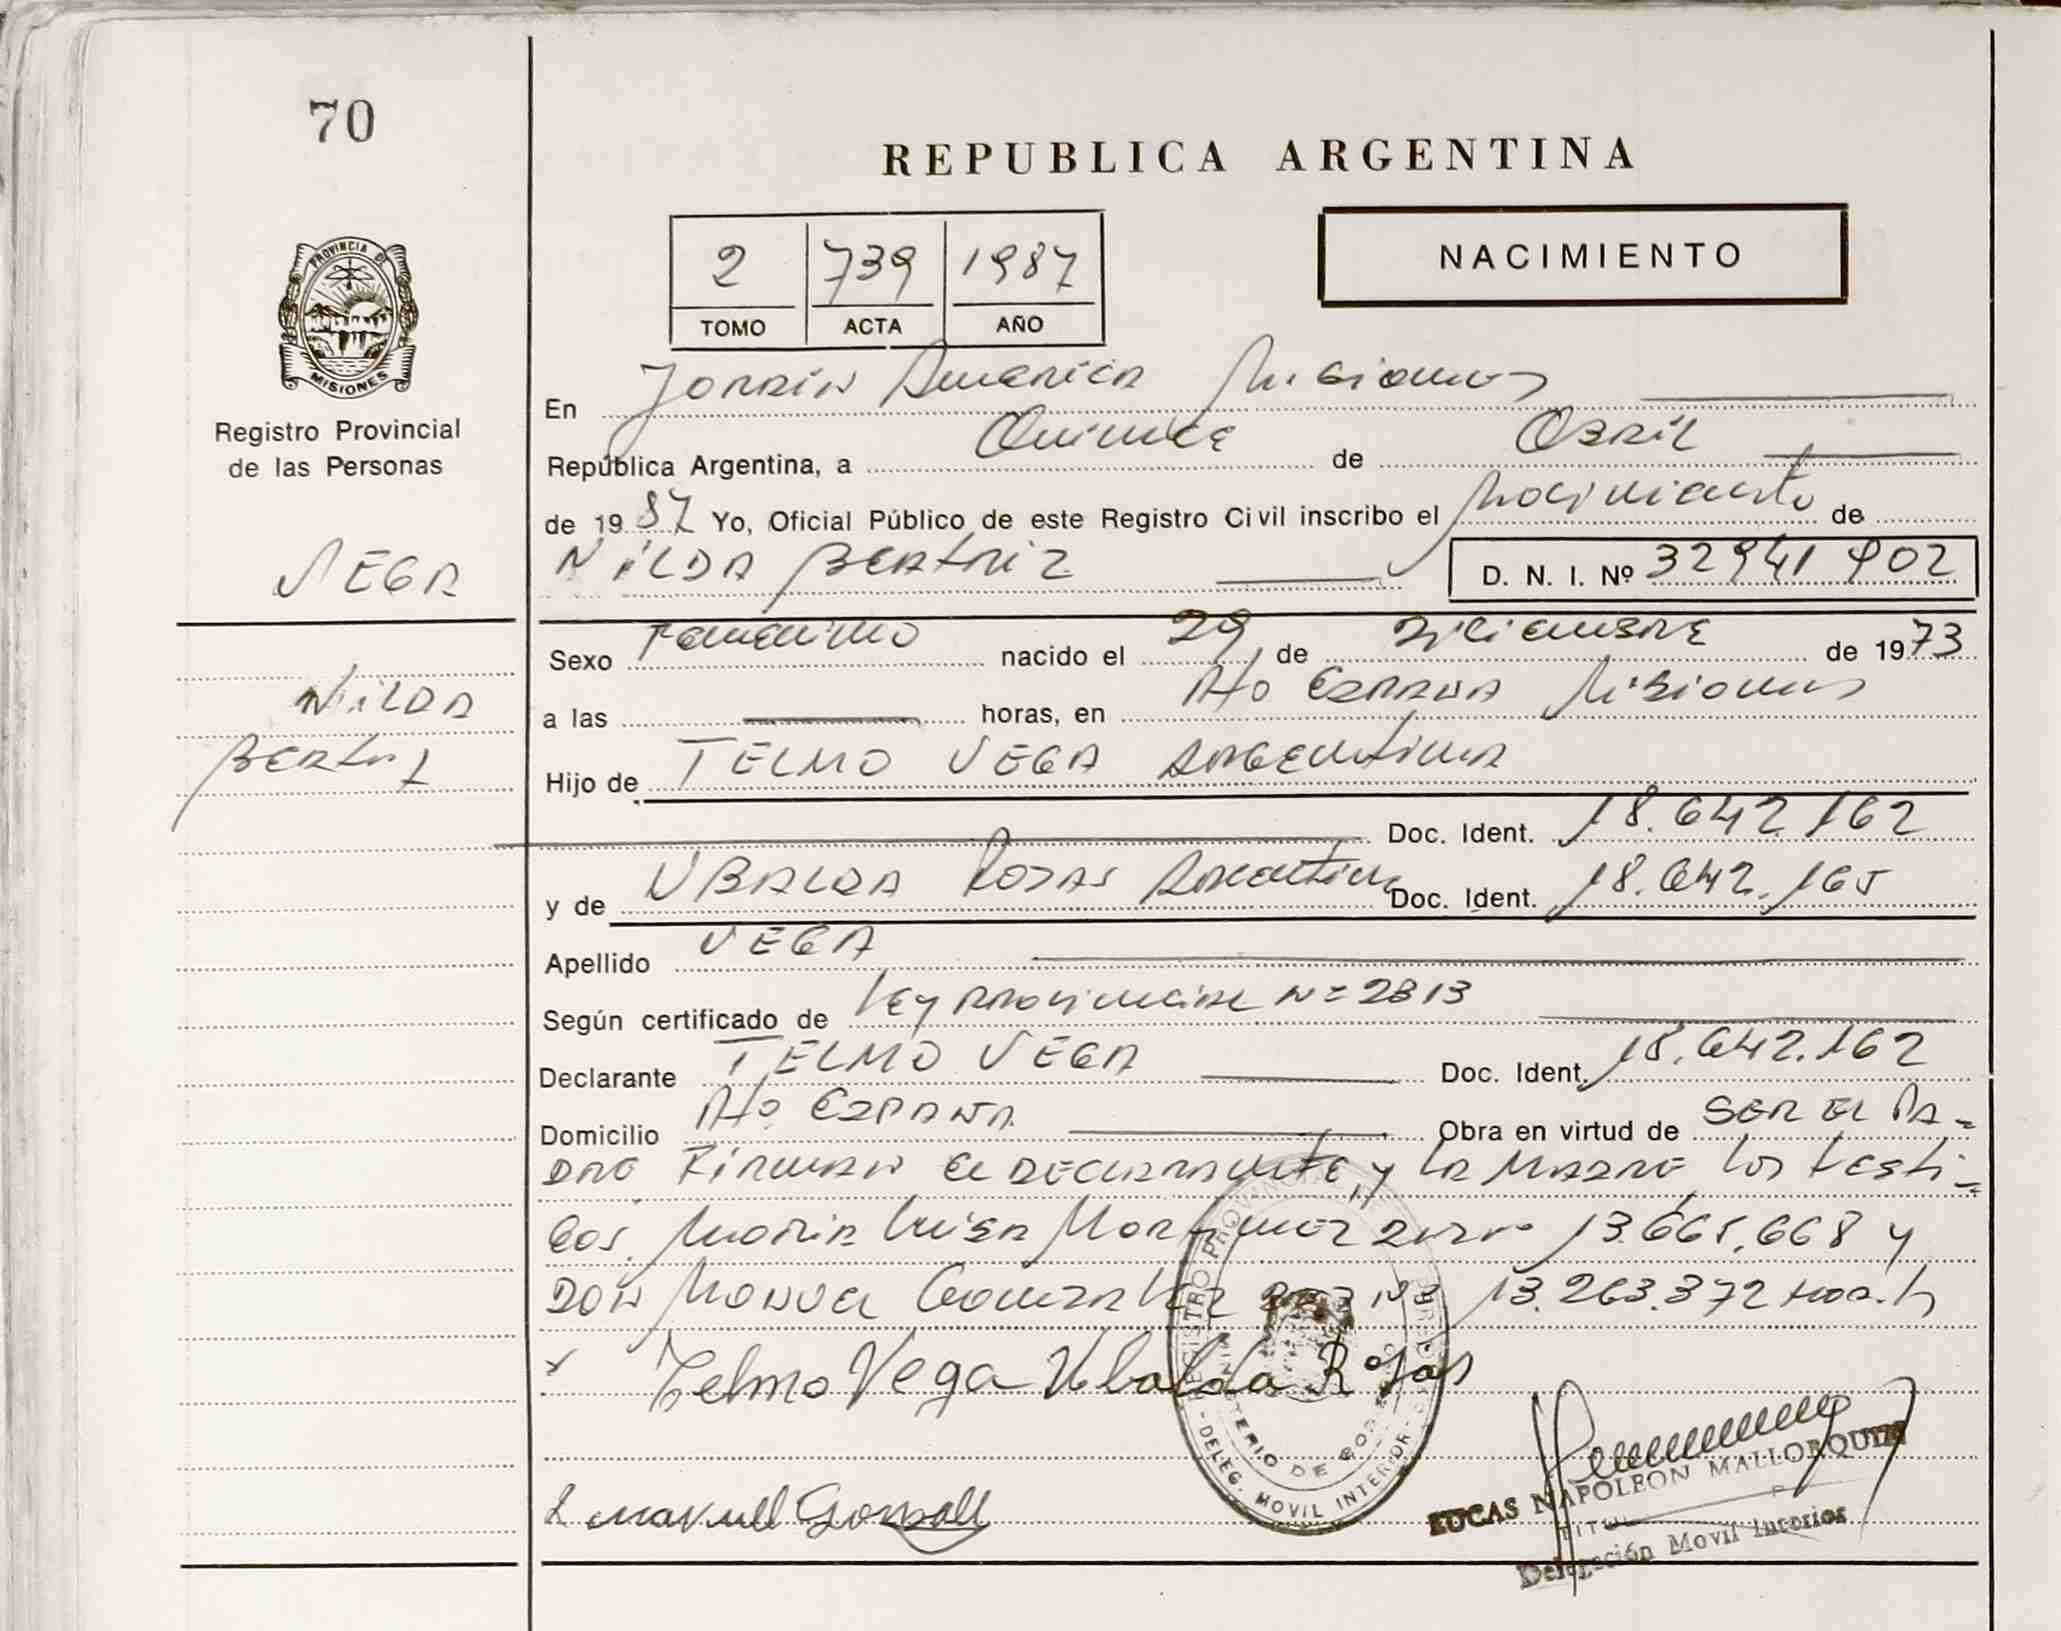 70
REPUBLICA ARGENTINA
2 739 1987
TOMO ACTA AÑO
NACIMIENTO
PROVINCIA DE
MISIONES
Registro Provincial
de las Personas
VEGA
NILDA
BEATRIZ
En Jardín América Misiones
República Argentina, a Quince de Abril
de 1987 Yo, Oficial Público de este Registro Civil inscribo el Nacimiento de
NILDA BEATRIZ D. N. I. Nº 32941 902
Sexo Femenino nacido el 29 de Diciembre de 1973
a las horas, en Pto España Misiones
Hijo de TELMO VEGA Argentina
Doc. Ident. 18.642.162
y de UBALDA ROJAS Argentina Doc. Ident. 18.642.165
Apellido VEGA
Según certificado de Ley Provincial Nº 2813
Declarante TELMO VEGA Doc. Ident. 18.642.162
Domicilio Pto España Obra en virtud de SER EL PA-
DRE Firman el DECLARANTE, y LA MADRE los testi-
gos. María Luisa 13.665.668 y
DON Manuel 13.263.372
Telmo Vega Ubalda Rojas
REGISTRO PROVINCIAL DE
MINISTERIO DE GOBIERNO
-DELEG. MOVIL INTERIOR-
LUCAS NAPOLEON MALLORQUIN
TITULAR
Delegación Movil Interior